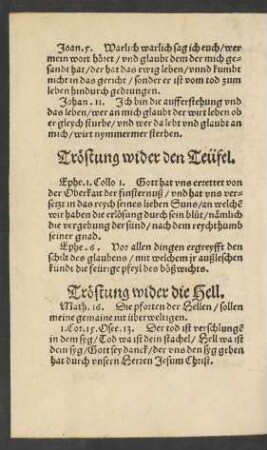 Joan.5. Warlich warlich sag ich euch/wer
mein wort höret/vnd glaubt dem der mich ge-
sandt hat/der hat das ewig leben/vnnd kumbt
nicht in das gericht/sonder er ist vom tod zum
leben hindurch gedrungen.
Johan. 11. Ich bin die aufferstehung vnd
das leben/wer an mich glaubt der wirt leben ob
er gleych sturbe/vnd wer da lebt vnd glaubt an
mich/wirt nymmermer sterben.
Tröstung wider den Teüfel.
Ephe.1. Collo 1. Gott hat vns errettet von
der Oberkait der finsternuß/vnd hat vns ver-
setzt in das reych seines lieben Suns/an welchē
wir haben die erlösung durch sein blůt/nämlich
die vergebung der sünd/nach dem reychthumb
seiner gnad.
Ephe.6. Vor allen dingen ergreyfft den
schilt des glaubens/mit welchem jr außleschen
kündt die feürige pfeyl des bößwichts.
Tröstung wider die Hell.
Math.16. Die pforten der Hellen/sollen
meine gemaine nit überweltigen.
1.Cor.15. Osee.13. Der tod ist verschlungē
in dem syg/Tod wa ist dein stachel/Hell wa ist
dein syg/Gott sey danck/der vns den syg geben
hat durch vnsern Herren Jesum Christ.